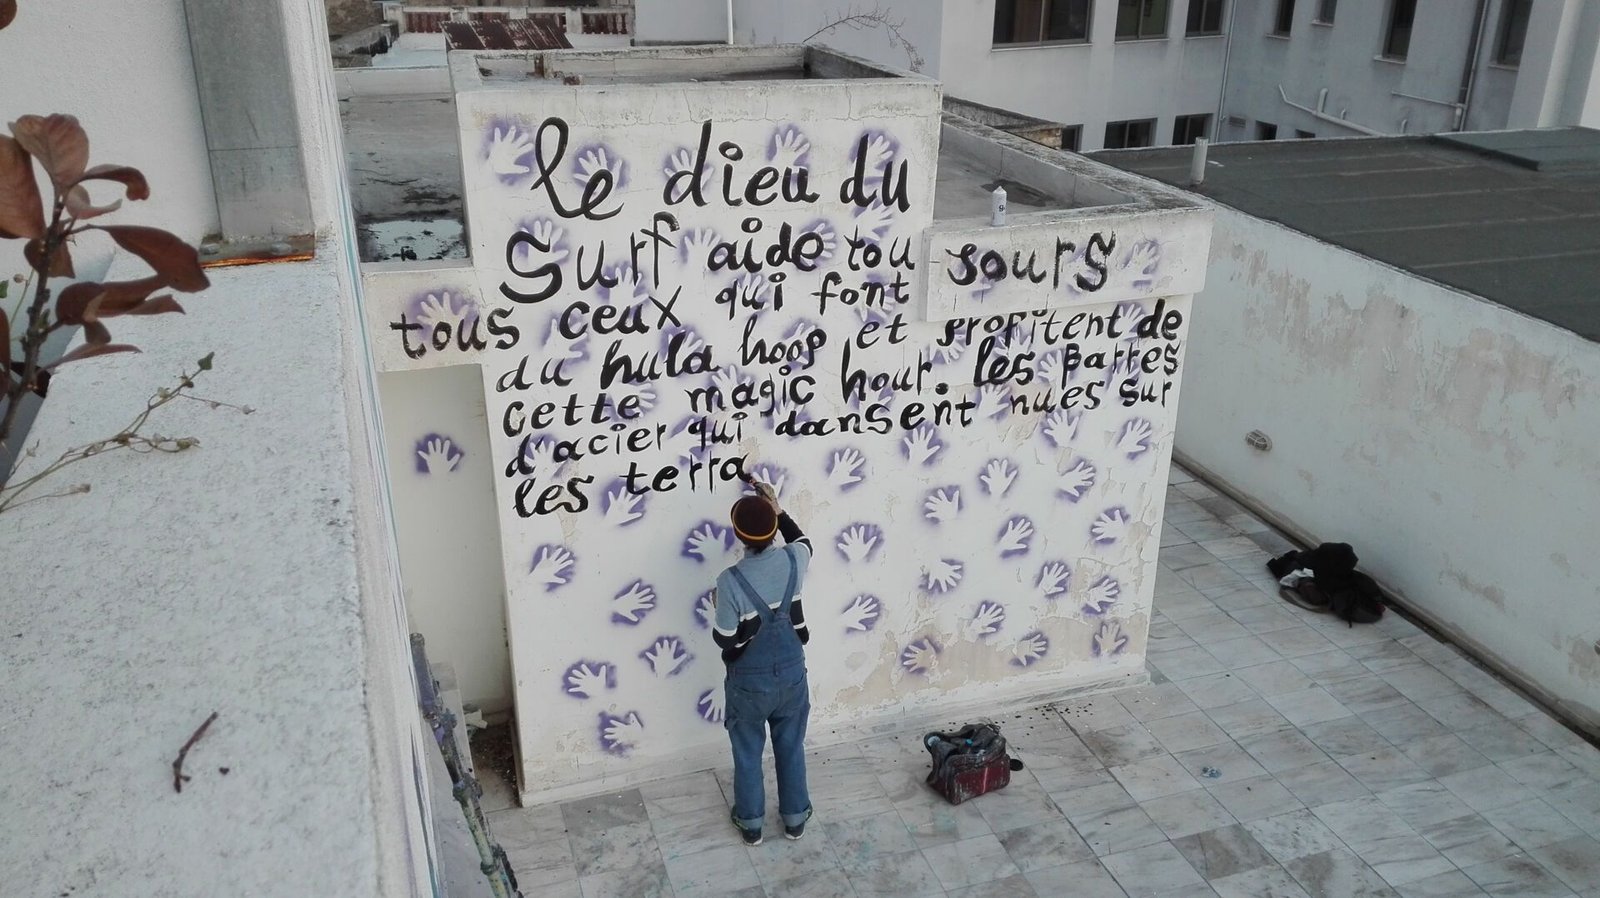 le dieu du
surf aide tou jours
tous ceux qui font
du hula hoop et profitent de
cette magic hour. les barres
d'acier qui dansent nues sur
les terra